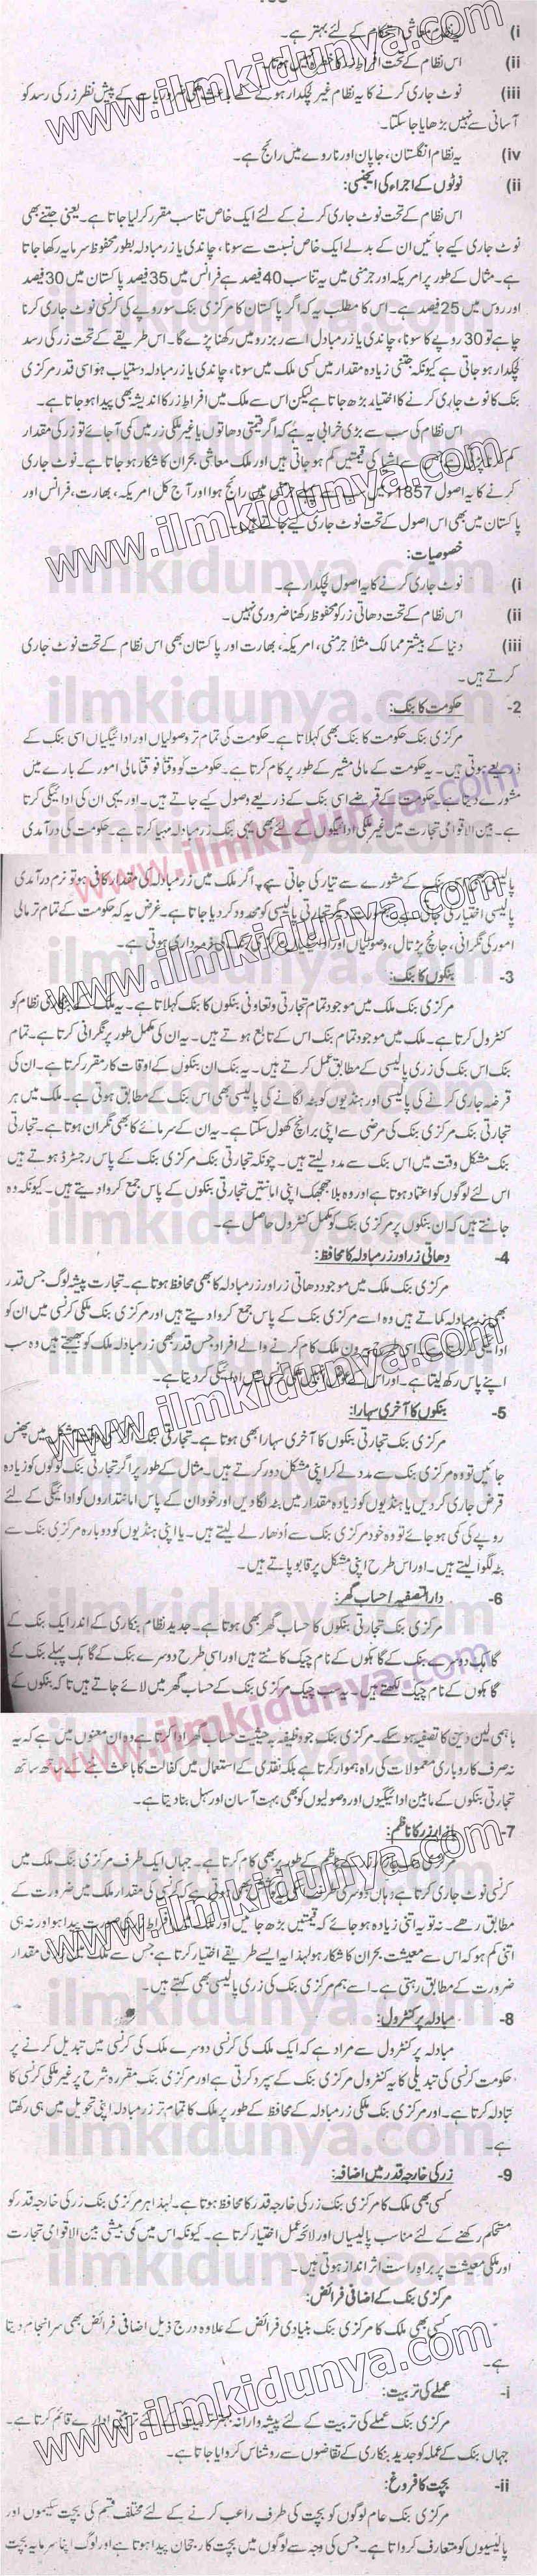 (i یہ نظام معاشی استحکام کے لئے بہتر ہے۔
(ii اس نظام کے تحت افراط زر کا خطرہ نہیں ہوتا۔
(iii نوٹ جاری کرنے کا یہ نظام غیر لچکدار ہونے کے باعث کے پیش نظر زر کی رسد کو
آسانی سے نہیں بڑھایا جا سکتا۔
(iv یہ نظام انگلستان، جاپان اور ناروے میں رائج ہے۔
(ii نوٹوں کے اجراء کی ایجنسی:
اس نظام کے تحت نوٹ جاری کرنے کے لئے ایک خاص تناسب مقرر کر لیا جاتا ہے۔ یعنی جتنے بھی
نوٹ جاری کیے جائیں ان کے بدلے ایک خاص نسبت سے سونا، چاندی یا زر مبادلہ بطور محفوظ سرمایہ رکھا جاتا
ہے۔ مثال کے طور پر امریکہ اور جرمنی میں یہ تناسب 40 فیصد ہے فرانس میں 35 فیصد پاکستان میں 30 فیصد
اور روس میں 25 فیصد ہے۔ اس کا مطلب یہ کہ اگر پاکستان کا مرکزی بنک سو روپے کی کرنسی نوٹ جاری کرنا
چاہے تو 30 روپے کا سونا، چاندی یا زر مبادل اسے ریزرو میں رکھنا پڑے گا۔ اس طریقے کے تحت زر کی رسد
لچکدار ہو جاتی ہے کیونکہ جتنی زیادہ مقدار میں کسی ملک میں سونا، چاندی یا زر مبادلہ دستیاب ہو اسی قدر مرکزی
بنک کا نوٹ جاری کرنے کا اختیار بڑھ جاتا ہے لیکن اس سے ملک میں افراط زر کا اندیشہ بھی پیدا ہو جاتا ہے۔
اس نظام کی سب سے بڑی خرابی یہ ہے کہ اگر قیمتی دھاتوں یا غیر ملکی زر میں کمی آ جائے تو زر کی مقدار
کم اشیا کی قیمتیں کم ہو جاتی ہیں اور ملک معاشی بحران کا شکار ہو جاتا ہے۔ نوٹ جاری
کرنے کا یہ اصول 1857ء میں رائج ہوا اور آج کل امریکہ، بھارت، فرانس اور
پاکستان میں بھی اس اصول کے تحت نوٹ جاری کیے جاتے ہیں۔
خصوصیات:
(i نوٹ جاری کرنے کا یہ اصول لچکدار ہے۔
(ii اس نظام کے تحت دھاتی زر کو محفوظ رکھنا ضروری نہیں۔
(iii دنیا کے بیشتر ممالک مثلاً جرمنی، امریکہ، بھارت اور پاکستان بھی اس نظام کے تحت نوٹ جاری
کرتے ہیں۔
2- حکومت کا بنک:
مرکزی بنک حکومت کا بنک بھی کہلاتا ہے۔ حکومت کی تمام تر وصولیاں اور ادائیگیاں اسی بنک کے
ذریعے ہوتی ہیں۔ یہ حکومت کے مالی مشیر کے طور پر کام کرتا ہے۔ حکومت کو وقتاً فوقتاً مالی امور کے بارے میں
مشورے دیتا ہے۔ حکومت کے قرضے اسی بنک کے ذریعے وصول کیے جاتے ہیں۔ اور یہی ان کی ادائیگی کرتا
ہے۔ بین الاقوامی تجارت میں غیر ملکی ادائیگیوں کے لئے بھی یہی بنک زر مبادلہ مہیا کرتا ہے۔ حکومت کی درآمدی
پالیسی بنک کے مشورے سے تیار کی جاتی ہے۔ اگر ملک میں زر مبادلہ کی مقدار کافی ہو تو نرم درآمدی
پالیسی اختیار کی جاتی ہے تجارتی پالیسی کو محدود کر دیا جاتا ہے۔ غرض یہ کہ حکومت کے تمام تر مالی
امور کی نگرانی، جانچ پڑتال، وصولیاں اور ذمہ داری ہوتی ہے۔
3- بنکوں کا بنک:
مرکزی بنک ملک میں موجود تمام تجارتی و تعاونی بنکوں کا بنک کہلاتا ہے۔ یہ ملک کے بنکاری نظام کو
کنٹرول کرتا ہے۔ ملک میں موجود تمام بنک اس کے تابع ہوتے ہیں۔ یہ ان کی مکمل طور پر نگرانی کرتا ہے۔ تمام
بنک اس بنک کی زری پالیسی کے مطابق عمل کرتے ہیں۔ یہ بنک ان بنکوں کے اوقات کار مقرر کرتا ہے۔ ان کی
قرضہ جاری کرنے کی پالیسی اور ہنڈیوں کو بٹہ لگانے کی پالیسی بھی اس بنک کے مطابق ہوتی ہے۔ ملک میں ہر
تجارتی بنک مرکزی بنک کی مرضی سے اپنی برانچ کھول سکتا ہے۔ یہ ان کے سرمائے کا بھی نگران ہوتا ہے۔ تجارتی
بنک مشکل وقت میں اس بنک سے مدد لیتے ہیں۔ چونکہ تجارتی بنک مرکزی بنک کے پاس رجسٹرڈ ہوتے ہیں
اس لئے لوگوں کو اعتماد ہوتا ہے اور وہ بلا جھجک اپنی امانتیں تجارتی بنکوں کے پاس جمع کروا دیتے ہیں۔ کیونکہ وہ
جانتے ہیں کہ ان بنکوں پر مرکزی بنک کو مکمل کنٹرول حاصل ہے۔
4- دھاتی زر اور زر مبادلہ کا محافظ:
مرکزی بنک ملک میں موجود دھاتی زر اور زر مبادلہ کا بھی محافظ ہوتا ہے۔ تجارت پیشہ لوگ جس قدر
بھی زر مبادلہ کماتے ہیں وہ اسے مرکزی بنک کے پاس جمع کروا دیتے ہیں اور مرکزی بنک ملکی کرنسی میں ان کو
ادائیگی اسی طرح بیرون ملک کام کرنے والے افراد جس قدر بھی زر مبادلہ ملک کو بھیجتے ہیں وہ سب
اپنے پاس رکھ لیتا ہے۔ اور اس کے میں ادائیگی کر دیتا ہے۔
5- بنکوں کا آخری سہارا:
مرکزی بنک تجارتی بنکوں کا آخری سہارا بھی ہوتا ہے۔ تجارتی مشکل میں پھنس
جائیں تو وہ مرکزی بنک سے مدد لے کر اپنی مشکل دور کرتے ہیں۔ مثال کے طور پر اگر تجارتی بنک لوگوں کو زیادہ
قرض جاری کر دیں یا ہنڈیوں کو زیادہ مقدار میں بٹہ لگا دیں اور خود ان کے پاس امانتداروں کو ادائیگی کے لئے
روپے کی کمی ہو جائے تو وہ خود مرکزی بنک سے اُدھار لے لیتے ہیں۔ یا اپنی ہنڈیوں کو دوبارہ مرکزی بنک سے
بٹہ لگوا لیتے ہیں۔ اور اس طرح اپنی مشکل پر قابو پاتے ہیں۔
6- دارالتصفیہ / حساب گھر:
مرکزی بنک تجارتی بنکوں کا حساب گھر بھی ہوتا ہے۔ جدید نظام بنکاری کے اندر ایک بنک کے
گاہک دوسرے بنک کے گاہکوں کے نام چیک کاٹتے ہیں اور اسی طرح دوسرے بنک کے گاہک پہلے بنک کے
گاہکوں کے نام چیک لکھتے ہیں۔ یہ سب چیک مرکزی بنک کے حساب گھر میں لائے جاتے ہیں تاکہ بنکوں کے
باہمی لین دین کا تصفیہ ہو سکے۔ مرکزی بنک جو وظیفہ بہ حیثیت حساب گھر ادا کرتا ہے وہ ان معنوں میں ہے کہ یہ
نہ صرف کاروباری معمولات کی راہ ہموار کرتا ہے بلکہ نقدی کے استعمال میں کفالت کا باعث بننے کے ساتھ ساتھ
تجارتی بنکوں کے مابین ادائیگیوں اور وصولیوں کو بھی بہت آسان اور سہل بنا دیتا ہے۔
7- بازار زر کا ناظم:
مرکزی ناظم کے طور پر بھی کام کرتا ہے۔ جہاں ایک طرف مرکزی بنک ملک میں
کرنسی نوٹ جاری کرتا ہے وہاں دوسری طرف ہوتی ہے کہ کرنسی کی مقدار ملک میں ضرورت کے
مطابق رہے۔ نہ تو یہ اتنی زیادہ ہو جائے کہ قیمتیں بڑھ جائیں اور ملک میں افراط صورت پیدا ہو اور نہ ہی
اتنی کم ہو کہ اس سے معیشت بحران کا شکار ہو لہذا یہ ایسے طریقے اختیار کرتا ہے جس سے ملک کی مقدار
ضرورت کے مطابق رہتی ہے۔ اسے ہم مرکزی بنک کی زری پالیسی بھی کہتے ہیں۔
8- مبادلہ پر کنٹرول:
مبادلہ پر کنٹرول سے مراد ہے کہ ایک ملک کی کرنسی دوسرے ملک کی کرنسی میں تبدیل کرنے پر
حکومت کرنسی کی تبدیلی کا یہ کنٹرول مرکزی بنک کے سپرد کرتی ہے اور مرکزی بنک مقررہ شرح پر غیر ملکی کرنسی کا
تبادلہ کرتا ہے۔ اور مرکزی بنک ملکی زر مبادلہ کے محافظ کے طور پر ملک کا تمام تر زر مبادلہ اپنی تحویل میں ہی رکھتا
ہے۔
9- زر کی خارجہ قدر میں اضافہ:
کسی بھی ملک کا مرکزی بنک زر کی خارجہ قدر کا محافظ ہوتا ہے۔ لہذا ہر مرکزی بنک زر کی خارجہ قدر کو
مستحکم رکھنے کے لئے مناسب پالیسیاں اور لائحہ عمل اختیار کرتا ہے۔ کیونکہ اس میں کمی بیشی بین الاقوامی تجارت
اور ملکی معیشت پر براہ راست اثر انداز ہوتی ہیں۔
مرکزی بنک کے اضافی فرائض:
کسی بھی ملک کا مرکزی بنک بنیادی فرائض کے علاوہ درج ذیل اضافی فرائض بھی سر انجام دیتا
ہے۔
i- عملے کی تربیت:
مرکزی بنک عملے کی تربیت کے لئے پیشہ وارانہ ادارے قائم کرتا ہے۔
جہاں بنک کے عملہ کو جدید بنکاری کے تقاضوں سے روشناس کروایا جاتا ہے۔
ii- بچت کا فروغ:
مرکزی بنک عام لوگوں کو بچت کی طرف راغب کرنے کے لئے مختلف قسم کی بچت سکیموں اور
پالیسیوں کو متعارف کرواتا ہے۔ جس کی وجہ سے لوگوں میں بچت کا رجحان پیدا ہوتا ہے اور لوگ اپنا سرمایہ بچت
www.ilmkidunya.com